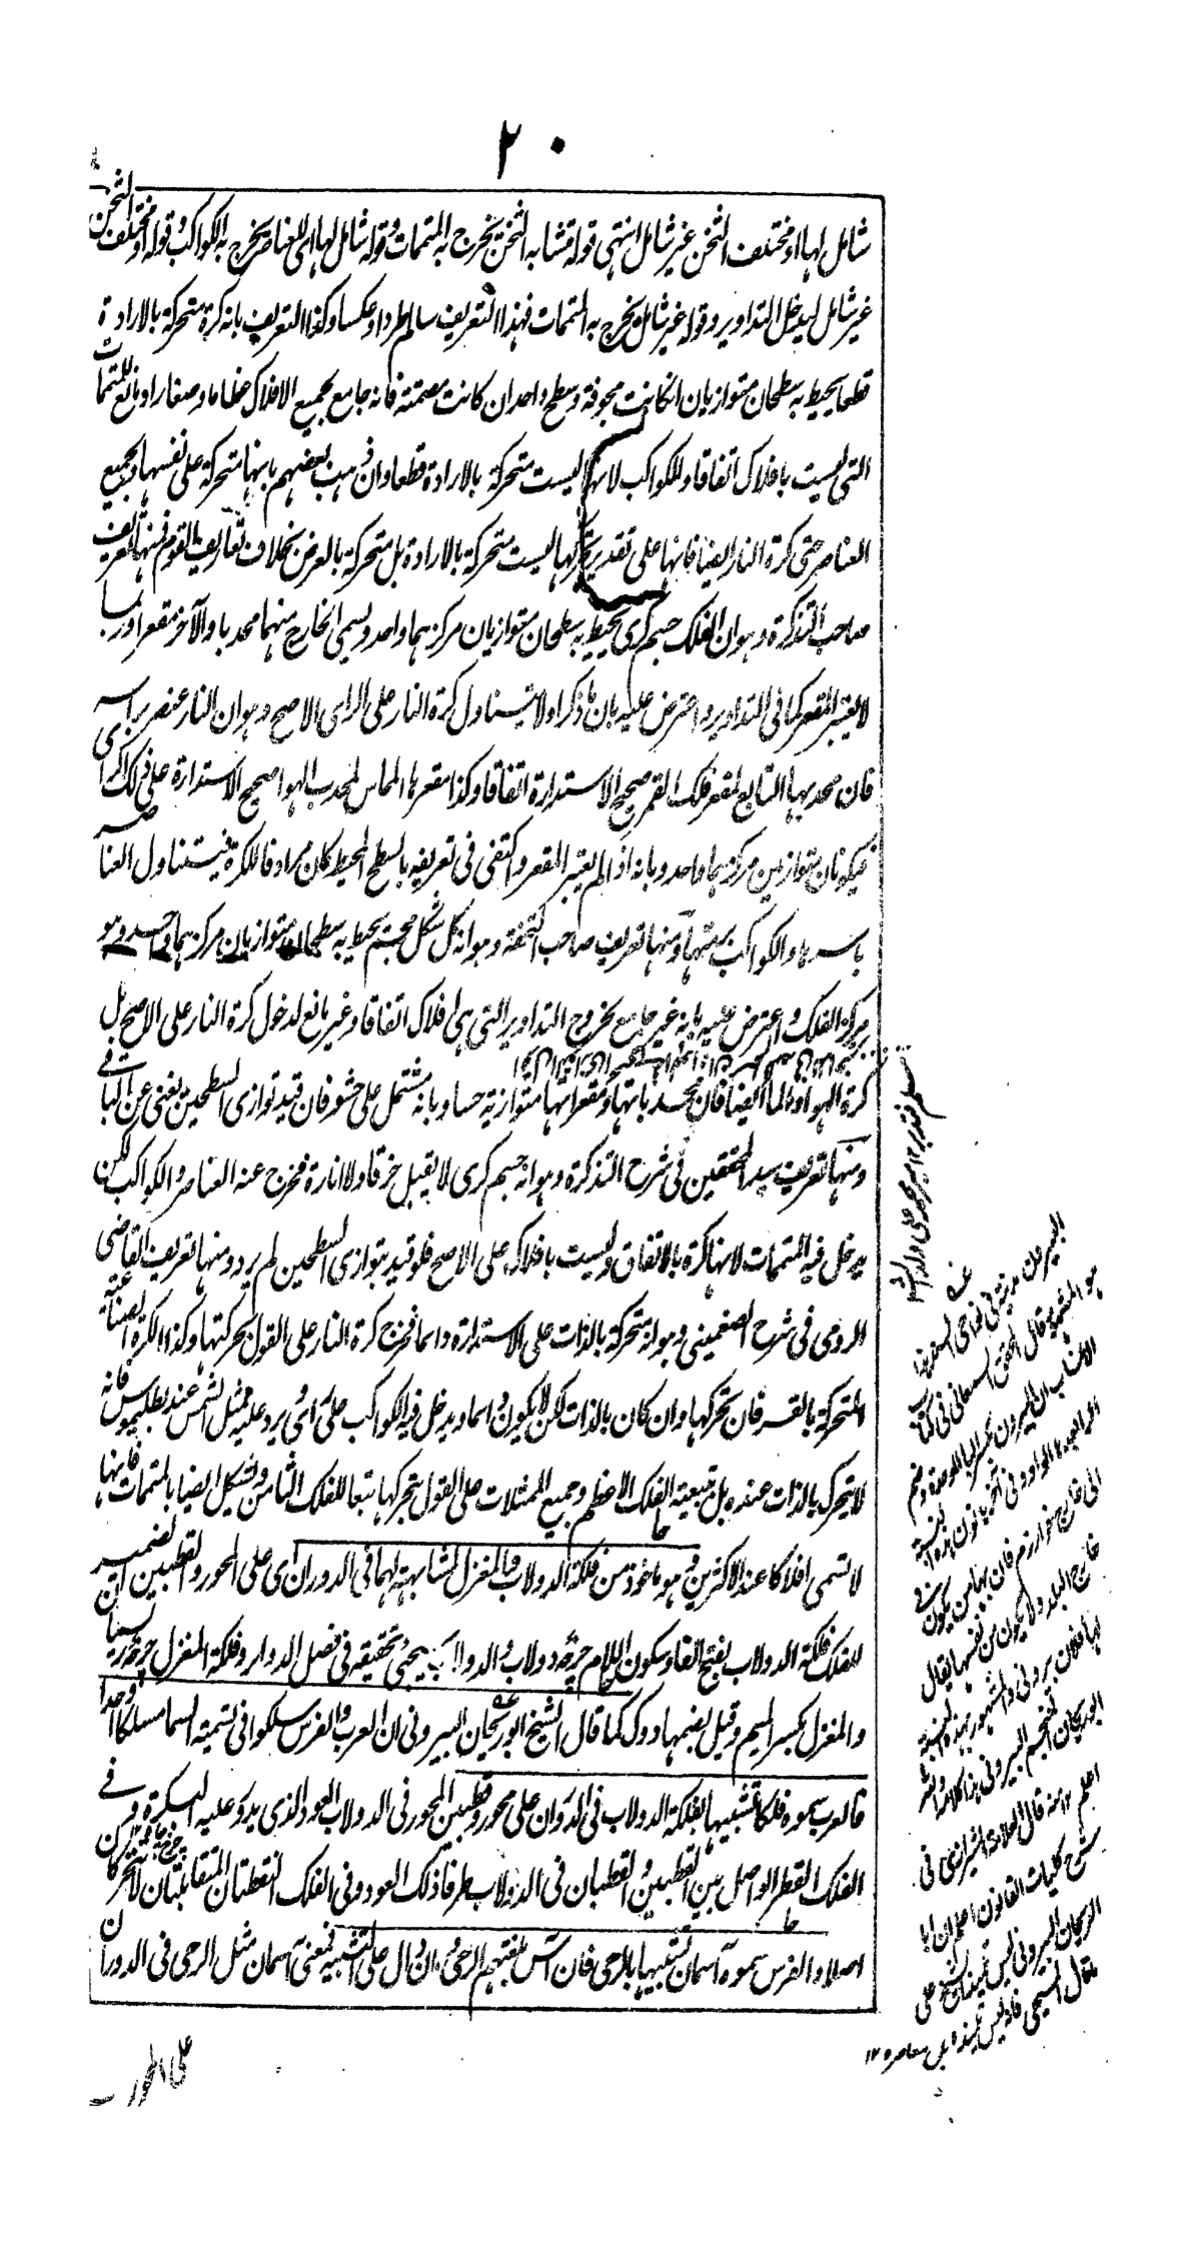 ٢٠
شامل لها او مختلف الثخن غير شامل انتهى قوله متشابه الثخن يخرج به المتممات وقوله شامل لها اى للعناصر يخرج به الكواكب وقوله او مختلف الثخن
غير شامل ليدخل التداوير وقوله غير شامل يخرج به المتممات فهذا التعريف سالم طردا وعكسا وكذا التعريف بانه كرة متحركة بالارادة
قطعا يحيط به سطحان متوازيان ان كانت مجوفة وسطح واحد ان كانت مصمتة فانه جامع بجميع الافلاك عظاما وصغارا ومانع للمتممات
التى ليست بافلاك اتفاقا وللكواكب لانها ليست متحركة بالارادة قطعا وان ذهب بعضهم بانها متحركة على نفسها ولجميع
العناصر حتى كرة النار ايضا فانها على تقدير تحركها ليست متحركة بالارادة بل متحركة بالعرض بخلاف تعاريف القوم فمنها تعريف
صاحب التذكرة وهو ان الفلك جسم كرى يحيط به سطحان متوازيان مركزهما واحد ويسمى الخارج منهما محدبا والآخر مقعرا وربما
لا يعتبر المقعر كما فى التداوير واعترض عليه بان ما ذكر اولا يتناول كرة النار على الراى الاصح وهو ان النار عنصر براسه
فان محدبها التابع لمقعر فلك القمر صحيح الاستدارة اتفاقا وكذا مقعرها المماس لمحدب الهوا صحيح الاستدارة على ذلك الراى
فيكونان متوازيين مركزهما واحد وبانه اذا لم يعتبر المقعر واكتفى فى تعريفه بالسطح المحيط كان مرادفا للكرة فيتناول العناصر
باسرها والكواكب برمتها ومنها تعريف صاحب التحفة وهو انه كل شكل مجسم يحيط به سطحان متوازيان مركزهما واحد وهو
مركز الفلك واعترض عليه بانه غير جامع بخروج التداوير التى هى افلاك اتفاقا وغير مانع لدخول كرة النار على الاصح بل
كرة الهوا والماء ايضا فان محدباتها ومقعراتها متوازية حسا وبانه مشتمل على حشو فان قيد توازى السطحين يغنى عن الباقى
ومنها تعريف سيد المحققين فى شرح التذكرة وهو انه جسم كرى لا يقبل خرقا ولا انارة فخرج عنه العناصر والكواكب لكن
يدخل فيه المتممات لانها كرة بالاتفاق وليست بافلاك على الاصح فلو قيد بتوازى السطحين لم يرد ومنها تعريف القاضى
الرومى فى شرح الچغمينى وهو انه متحركة بالذات على الاستدارة دائما فخرج كرة النار على القول بحركتها وكذا الكرة الصناعية
المتحركة بالقسر فان تحركها وان كان بالذات لكن لا يكون دائما ويدخل فيه الكواكب على راى ويرد عليه ممثل الشمس عند بطليموس فانه
لا يتحرك بالذات عنده بل بتبعية الفلك الاعظم وجميع الممثلات على القول بتحركها تبعا للفلك الثامن ويشكل ايضا بالمتممات فانها
لا تسمى افلاكا عند الاكثرين وهو ماخوذ من فلكة الدولاب والمغزل لمشابهته لهما فى الدوران اى على المحور والقطبين الضمير
للفلك فلكة الدولاب بفتح الفا وسكون اللام چرخه دولاب والدولاب يجئ تحقيقه فى فصل الدوائر وفلكة المغزل چرخه ريسيا
والمغزل بكسر الميم وقيل بضمها دوك كما قال الشيخ ابو ريحان البيرونى ان العرب والفرس سلكوا فى تسمية السما مسلكا واحدا
فالعرب سموه فلكا تشبيها بفلكة الدولاب فى الدوران على محور وقطبين المحور فى الدولاب العود الذى يدور عليه البكرة وفى
الفلك القطر الواصل بين القطبين والقطبان فى الدولاب طرفا ذلك العود وفى الفلك النقطتان المتقابلتان لا تتحركان
اصلا والفرس سموه آسمان تشبيها بالرحى فان آس بلغتهم الرحى ومان دال على التشبيه فمعنى آسمان مثل الرحى فى الدوران
على المحور
البيرون مدينة فى نواحى
هو المشهور قال المحقق السمعانى فى كتاب
الانساب ان البيرون بكسر الباء الموحدة وضم
الى خارج خوارزم فان بها من يكون
خارج البلد ولا يكون من نفسها يقال
لها فلان بيرونى والمشهور بهذه النسبة
ابو ريحان المنجم البيرونى هذا كلامه
اعلم ١٢ منه قال العلامة الشيرازى فى
شرح كليات القانون اعلم ان ابا
الريحان البيرونى ليس تلميذ الشيخ على
ما قال المسيحى فانه ليس تلميذه بل معاصره ١٢